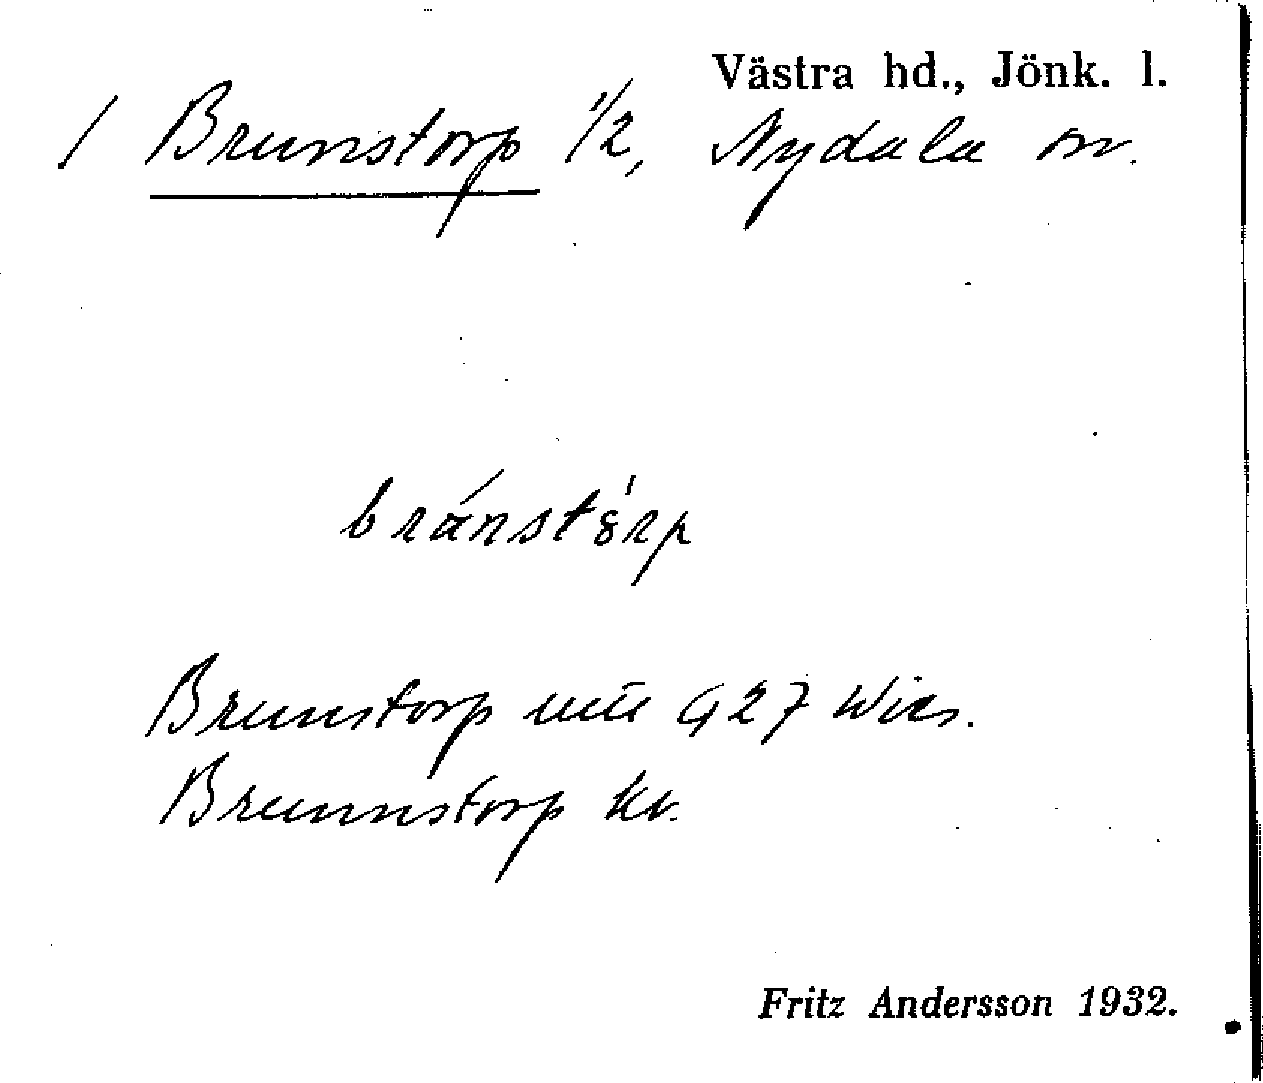 Västra hd., Jönk. l.
1 Brunstorp 1/2, Nydala sn.
bránstórp
Brunstorp G 27 Wies.
Brunnstorp kv.
Fritz Andersson 1932.